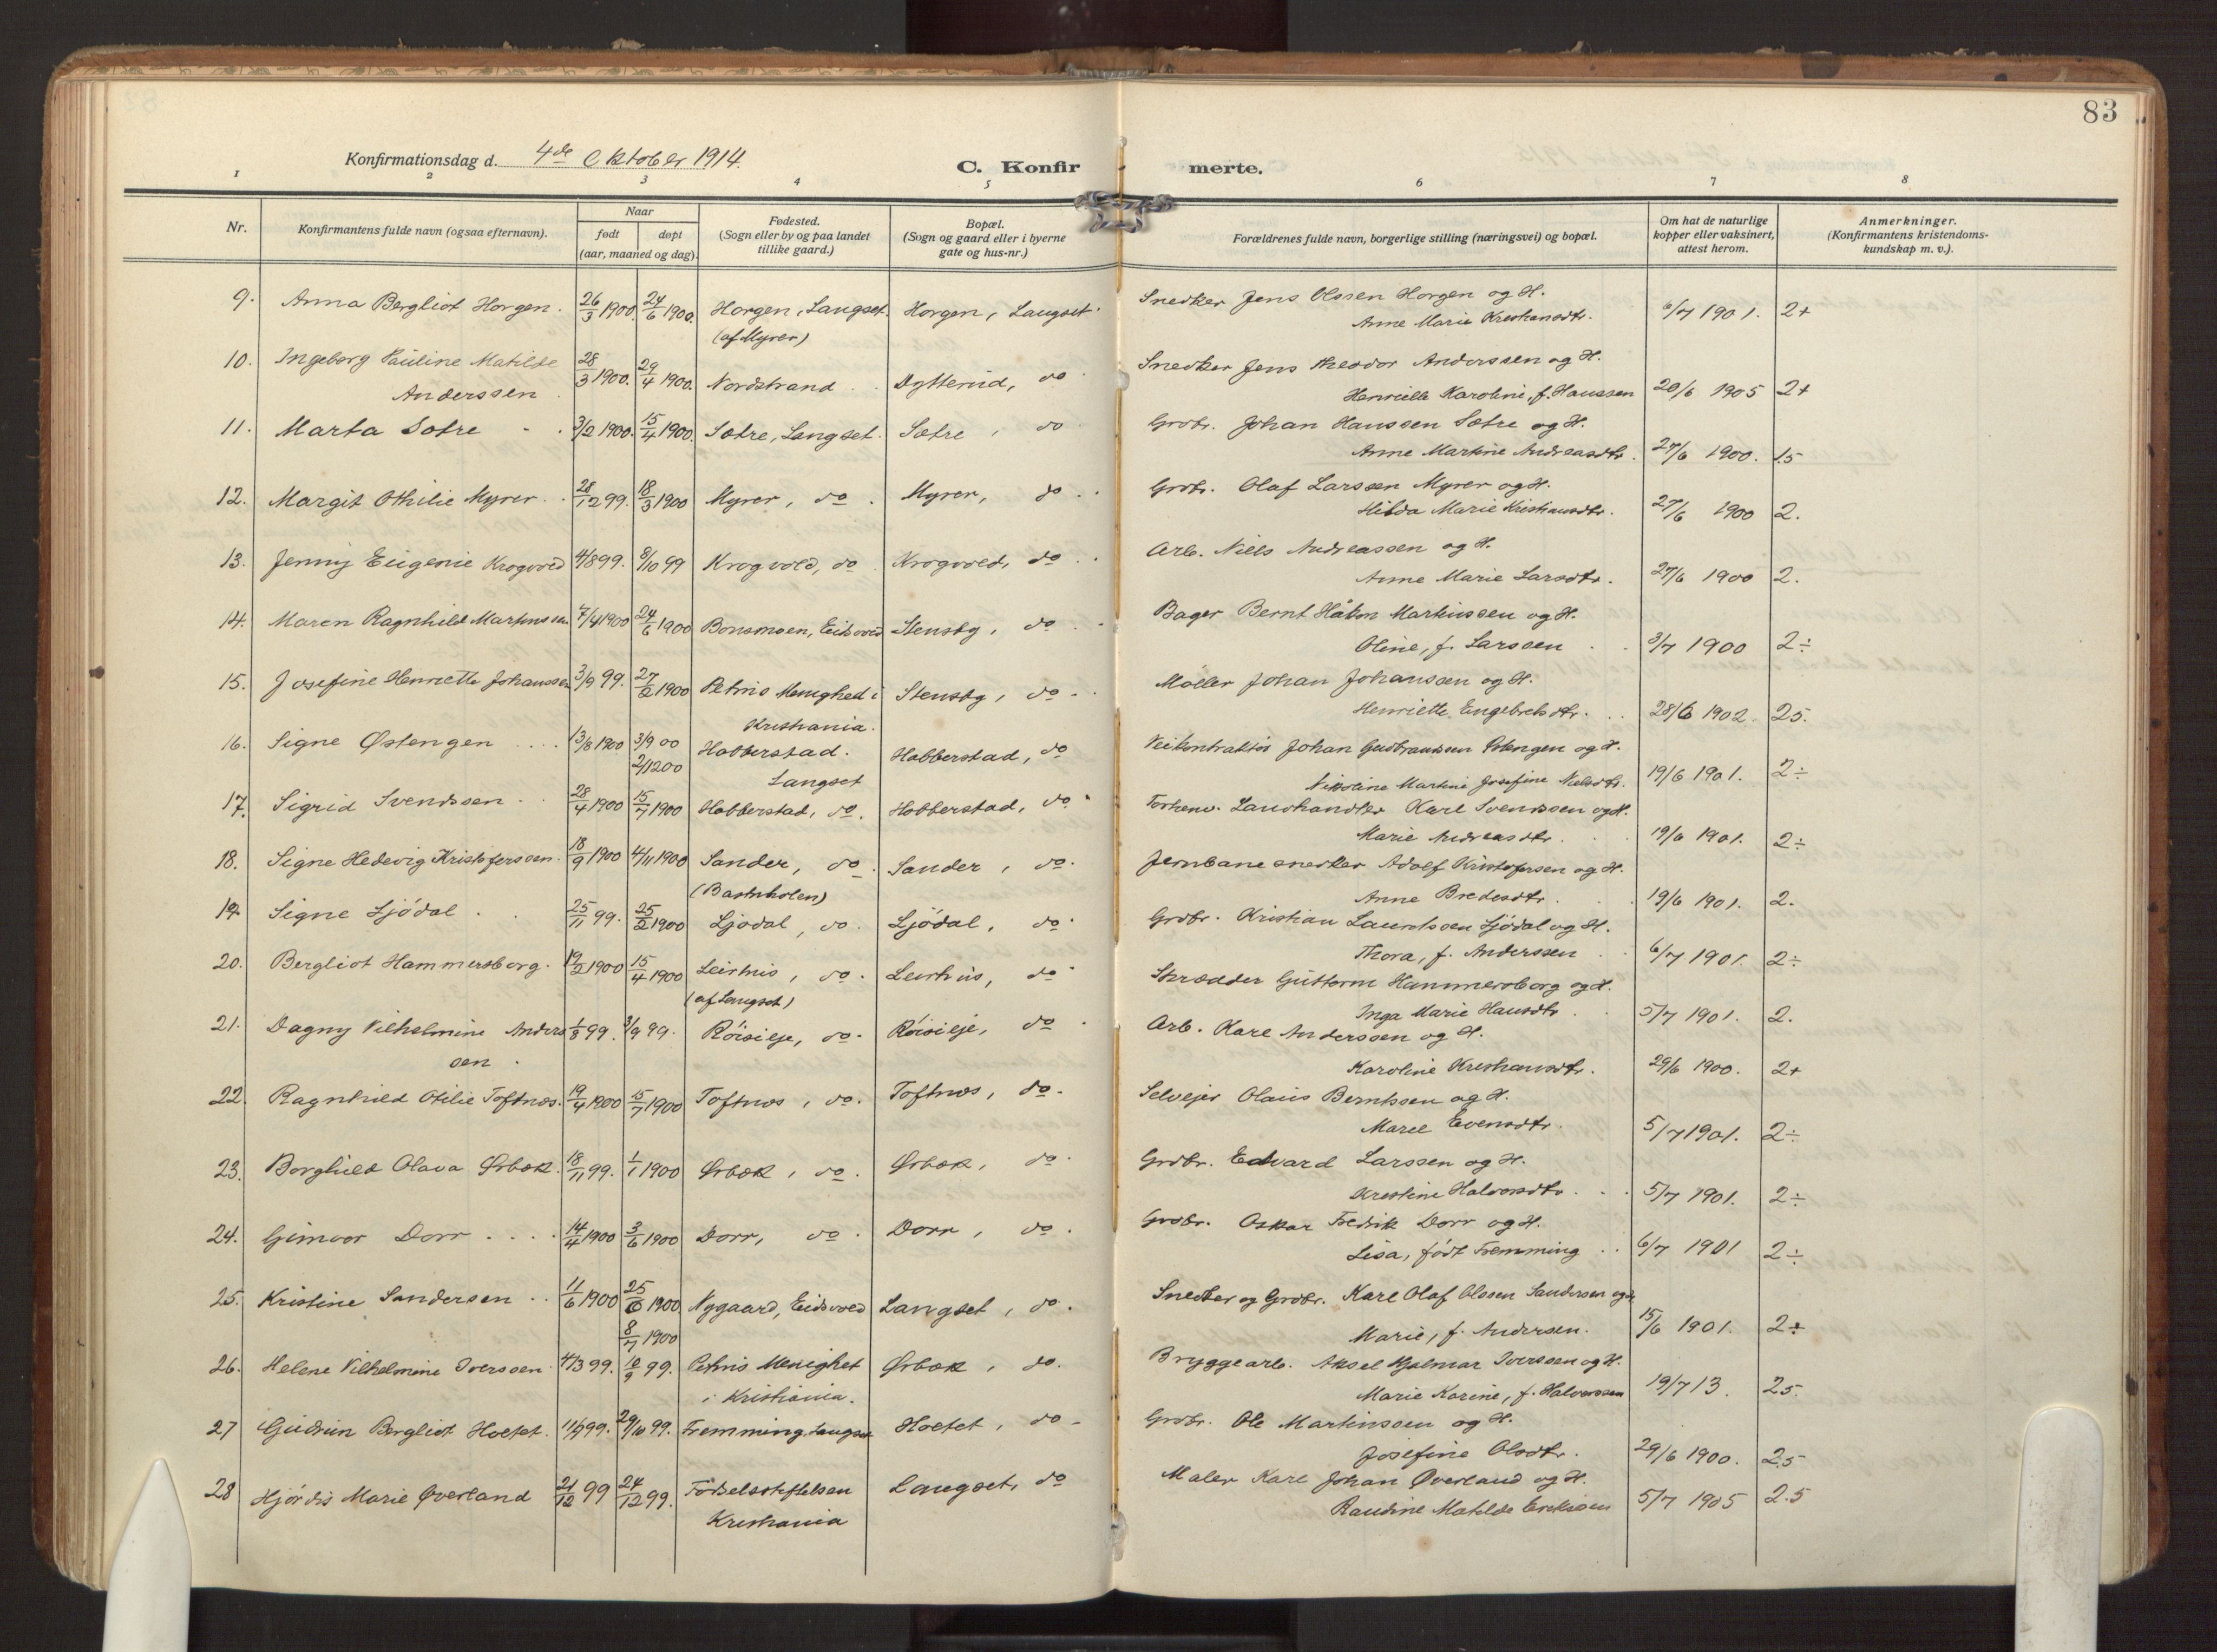 83
Konfirmationsdag d. 4de Oktober 1914.
C. Konfirmerte.
1 2 3 4 5 6 7 8
Nr.
Konfirmantens fulde navn (ogsaa efternavn).
Naar
født døpt
(aar, maaned og dag).
Fødested.
(Sogn eller by og paa landet
tillike gaard.)
Bopæl.
(Sogn og gaard eller i byerne
gate og hus-nr.)
Forældrenes fulde navn, borgerlige stilling (næringsvei) og bopæl.
Om hat de naturlige
kopper eller vaksinert,
attest herom.
Anmerkninger.
(Konfirmantens kristendoms-
kundskap m. v.).
9. Anna Bergliot Horgen. 26/3 1900. 24/6 1900. Horgen, Langset. Horgen, Langset. Snedker Jens Olssen Horgen og H.
(af Myrer) Anne Marie Kristiansdtr. 6/7 1901. 2+
10. Ingeborg Pauline Matilde 28/3 1900. 29/4 1900. Nordstrand Dytterud, do Snedker Jens Theodor Anderssen og H.
Anderssen Henriette Karoline, f. Hanssen 20/6 1905 2+
11. Marta Sætre 3/2 1900. 15/4 1900. Sætre, Langset. Sætre, do Grdbr. Johan Hanssen Sætre og H.
Anne Martine Andreasdtr. 27/6 1900. 1.5
12. Margit Othilie Myrer. 28/12 99. 18/3 1900 Myrer, do. Myrer, do. Grdbr. Olaf Larssen Myrer og H.
Hilda Marie Kristiansdtr. 27/6 1900 2.
13. Jenny Eugenie Krogvold 4/8 99. 8/10 99 Krogvold, do. Krogvold, do. Arb. Niels Andreassen og H.
Anne Marie Larsdtr. 27/6 1900 2.
14. Maren Ragnhild Martinssen 7/4 1900 24/6 1900 Bønsmoen, Eidsvold Stensby, do. Bager Bernt Håkon Martinssen og H.
Oline, f. Larssen 3/7 1900 2÷
15. Josefine Henriette Johanssen 3/9 99. 27/2 1900 Petrus Menighed i Stensby, do. Møller Johan Johanssen og H.
Kristiania. Henriette Engebretsdtr. 28/6 1902. 2.5.
16. Signe Østengen 13/8 1900 3/9 00 Habberstad. Habberstad, do Veikontraktør Johan Gulbranssen Østengen og H.
2/12 00 Langset Nikoline Martine Josefine Nielsdtr. 19/6 1901. 2÷
17. Sigrid Svendssen 28/4 1900 15/7 1900 Habberstad, do. Habberstad, do. Forhenv. Landhandler Karl Svendssen og H.
Marie Andreasdtr. 19/6 1901. 2÷
18. Signe Hedevig Kristoferssen. 18/9 1900 4/11 1900 Sander, do. Sander, do. Jernbanesnedker Adolf Kristofersen og H.
(Bastuholen) Anne Bredesdtr. 19/6 1901. 2.
19. Signe Ljødal 25/11 99. 25/2 1900 Ljødal, do. Ljødal, do. Grdbr. Kristian Lauritssen Ljødal og H.
Thora, f. Anderssen 6/7 1901. 2÷
20. Bergliot Hammersborg. 19/2 1900 15/4 1900 Leirhus, do. Leirhus, do. Skrædder Guttorm Hammersborg og H.
(af Langset) Inga Marie Hansdtr. 5/7 1901. 2.
21. Dagny Vilhelmine Anders 1/8 99. 3/9 99. Röiseje, do. Röiseje, do Arb. Karl Anderssen og H.
sen. Karoline Kristiansdtr. 29/6 1900. 2+
22. Ragnhild Otilie Toftnæs. 19/4 1900 15/7 1900 Toftnæs, do. Toftnæs, do. Selvejer Olaus Berntssen og H.
Marie Evensdtr. 5/7 1901. 2÷
23. Borghild Olava Ørbæk. 18/11 99. 1/1 1900 Ørbæk, do. Ørbæk, do. Grdbr. Edvard Larssen og H.
Kristine Halvorsdtr. 5/7 1901. 2÷
24. Gunvor Dorr 14/4 1900 3/6 1900 Dorr, do. Dorr, do. Grdbr. Oskar Fredrik Dorr og H.
Lisa, født Fremming 6/7 1901 2÷
25. Kristine Sandersen 11/6 1900 25/6 1900 Nygaard, Eidsvold Langset, do. Snedker og Grdbr. Karl Olaf Olssen Sandersen og H
8/7 1900 Marie, f. Andersen. 15/6 1901. 2+
26. Helene Vilhelmine Iverssen. 4/3 99. 10/9 99. Petrus Menighet Ørbæk, do. Bryggearb. Aksel Hjalmar Iverssen og H.
i Kristiania. Marie Karine, f. Halvorssen 19/7 13. 2.5.
27 Gudrun Bergliot Holtet. 11/9 99. 29/10 99. Fremming, Langset Holtet, do. Grdbr. Ole Martinssen og H.
Josefine Olsdtr. 29/6 1900. 2.5
28 Hjördis Marie Øverland 21/12 99 24/12 99. Födselsstiftelsen Langset, do Maler Karl Johan Øverland og H.
Kristiania Raudine Matilde Eriksen 5/7 1905 2.5